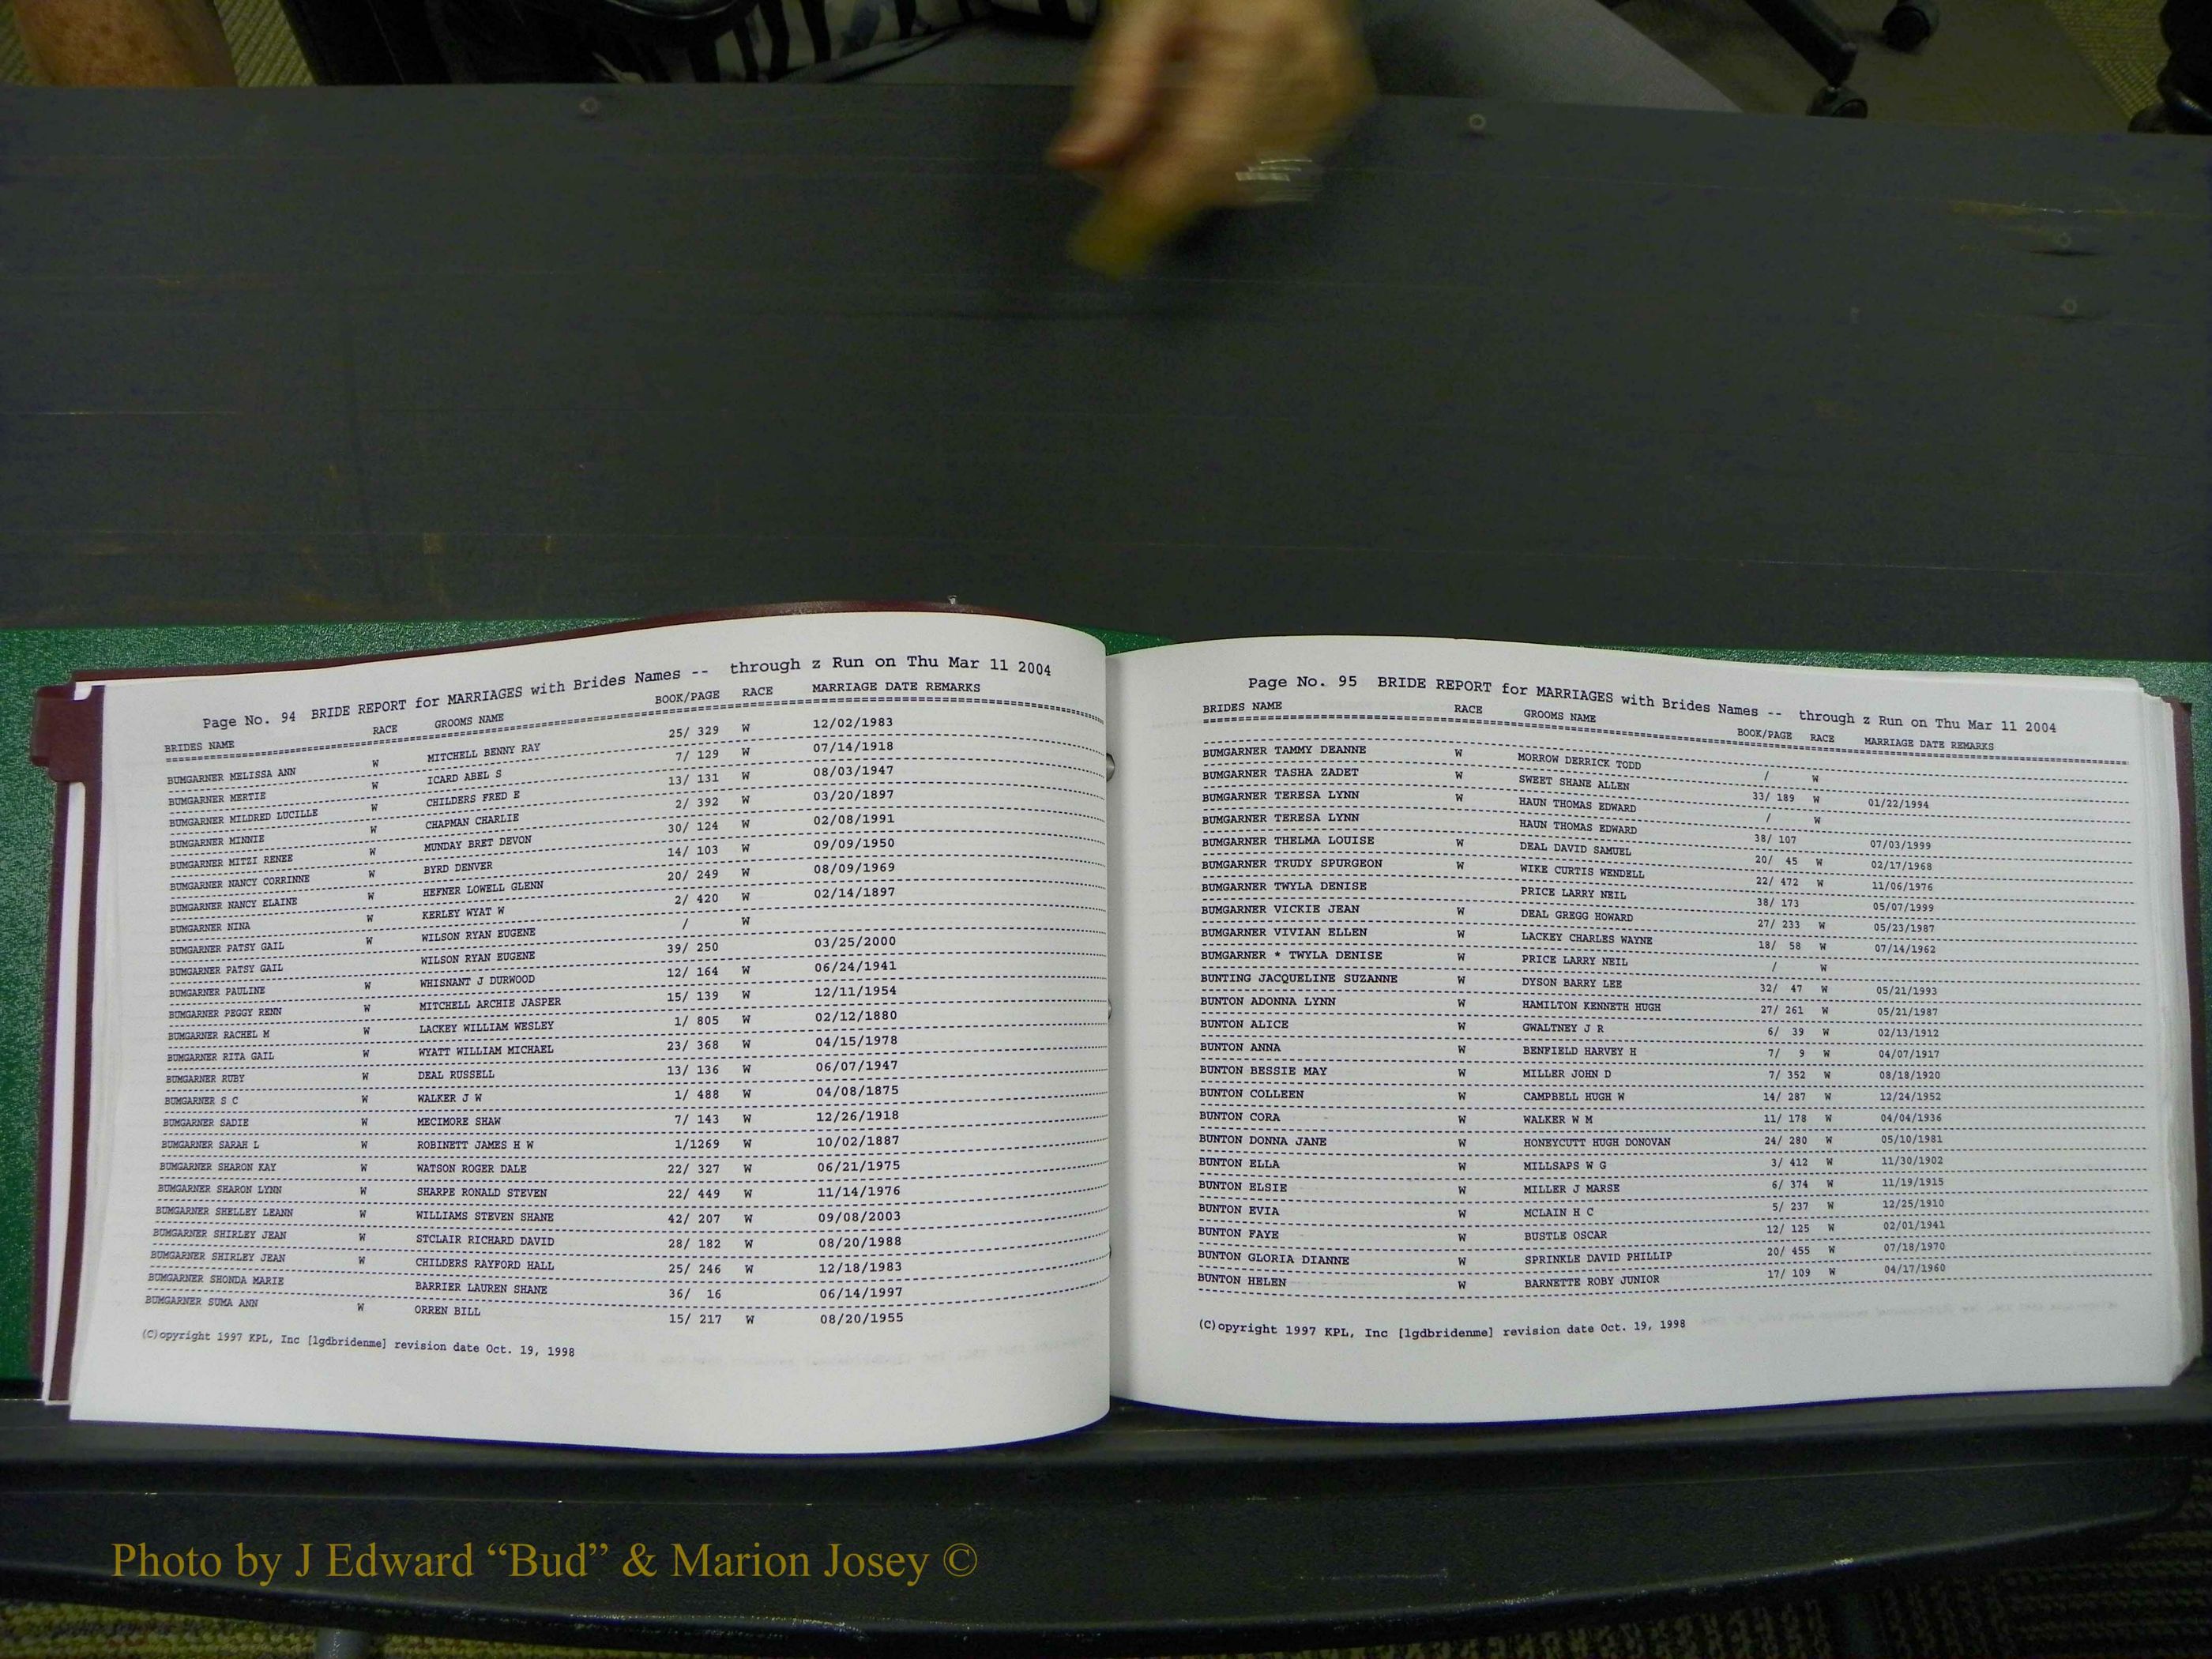 Page No. 94 BRIDE REPORT for MARRIAGES with Brides Names -- through z Run on Thu Mar 11 2004
BRIDES NAME RACE GROOMS NAME BOOK/PAGE RACE MARRIAGE DATE REMARKS
BUMGARNER MELISSA ANN W MITCHELL BENNY RAY 25/ 329 W 12/02/1983
BUMGARNER MERTIE W ICARD ABEL S 7/ 129 W 07/14/1918
BUMGARNER MILDRED LUCILLE W CHILDERS FRED E 13/ 131 W 08/03/1947
BUMGARNER MINNIE W CHAPMAN CHARLIE 2/ 392 W 03/20/1897
BUMGARNER MITZI RENEE W MUNDAY BRET DEVON 30/ 124 W 02/08/1991
BUMGARNER NANCY CORRINNE W BYRD DENVER 14/ 103 W 09/09/1950
BUMGARNER NANCY ELAINE W HEFNER LOWELL GLENN 20/ 249 W 08/09/1969
BUMGARNER NINA W KERLEY WYAT W 2/ 420 W 02/14/1897
BUMGARNER PATSY GAIL W WILSON RYAN EUGENE / W
BUMGARNER PATSY GAIL WILSON RYAN EUGENE 39/ 250 03/25/2000
BUMGARNER PAULINE W WHISNANT J DURWOOD 12/ 164 W 06/24/1941
BUMGARNER PEGGY RENN W MITCHELL ARCHIE JASPER 15/ 139 W 12/11/1954
BUMGARNER RACHEL M W LACKEY WILLIAM WESLEY 1/ 805 W 02/12/1880
BUMGARNER RITA GAIL W WYATT WILLIAM MICHAEL 23/ 368 W 04/15/1978
BUMGARNER RUBY W DEAL RUSSELL 13/ 136 W 06/07/1947
BUMGARNER S C W WALKER J W 1/ 488 W 04/08/1875
BUMGARNER SADIE W MECIMORE SHAW 7/ 143 W 12/26/1918
BUMGARNER SARAH L W ROBINETT JAMES H W 1/1269 W 10/02/1887
BUMGARNER SHARON KAY W WATSON ROGER DALE 22/ 327 W 06/21/1975
BUMGARNER SHARON LYNN W SHARPE RONALD STEVEN 22/ 449 W 11/14/1976
BUMGARNER SHELLEY LEANN W WILLIAMS STEVEN SHANE 42/ 207 W 09/08/2003
BUMGARNER SHIRLEY JEAN W STCLAIR RICHARD DAVID 28/ 182 W 08/20/1988
BUMGARNER SHIRLEY JEAN W CHILDERS RAYFORD HALL 25/ 246 W 12/18/1983
BUMGARNER SHONDA MARIE BARRIER LAUREN SHANE 36/ 16 06/14/1997
BUMGARNER SUMA ANN W ORREN BILL 15/ 217 W 08/20/1955
(C)opyright 1997 KPL, Inc [lgdbridenme] revision date Oct. 19, 1998
Page No. 95 BRIDE REPORT for MARRIAGES with Brides Names -- through z Run on Thu Mar 11 2004
BRIDES NAME RACE GROOMS NAME BOOK/PAGE RACE MARRIAGE DATE REMARKS
BUMGARNER TAMMY DEANNE W MORROW DERRICK TODD / W
BUMGARNER TASHA ZADET W SWEET SHANE ALLEN 33/ 189 W 01/22/1994
BUMGARNER TERESA LYNN W HAUN THOMAS EDWARD / W
BUMGARNER TERESA LYNN HAUN THOMAS EDWARD 38/ 107 07/03/1999
BUMGARNER THELMA LOUISE W DEAL DAVID SAMUEL 20/ 45 W 02/17/1968
BUMGARNER TRUDY SPURGEON W WIKE CURTIS WENDELL 22/ 472 W 11/06/1976
BUMGARNER TWYLA DENISE PRICE LARRY NEIL 38/ 173 05/07/1999
BUMGARNER VICKIE JEAN W DEAL GREGG HOWARD 27/ 233 W 05/23/1987
BUMGARNER VIVIAN ELLEN W LACKEY CHARLES WAYNE 18/ 58 W 07/14/1962
BUMGARNER * TWYLA DENISE W PRICE LARRY NEIL / W
BUNTING JACQUELINE SUZANNE W DYSON BARRY LEE 32/ 47 W 05/21/1993
BUNTON ADONNA LYNN W HAMILTON KENNETH HUGH 27/ 261 W 05/21/1987
BUNTON ALICE W GWALTNEY J R 6/ 39 W 02/13/1912
BUNTON ANNA W BENFIELD HARVEY H 7/ 9 W 04/07/1917
BUNTON BESSIE MAY W MILLER JOHN D 7/ 352 W 08/18/1920
BUNTON COLLEEN W CAMPBELL HUGH W 14/ 287 W 12/24/1952
BUNTON CORA W WALKER W M 11/ 178 W 04/04/1936
BUNTON DONNA JANE W HONEYCUTT HUGH DONOVAN 24/ 280 W 05/10/1981
BUNTON ELLA W MILLSAPS W G 3/ 412 W 11/30/1902
BUNTON ELSIE W MILLER J MARSE 6/ 374 W 11/19/1915
BUNTON EVIA W MCLAIN H C 5/ 237 W 12/25/1910
BUNTON FAYE W BUSTLE OSCAR 12/ 125 W 02/01/1941
BUNTON GLORIA DIANNE W SPRINKLE DAVID PHILLIP 20/ 455 W 07/18/1970
BUNTON HELEN W BARNETTE ROBY JUNIOR 17/ 109 W 04/17/1960
(C)opyright 1997 KPL, Inc [lgdbridenme] revision date Oct. 19, 1998
Photo by J Edward “Bud” & Marion Josey ©